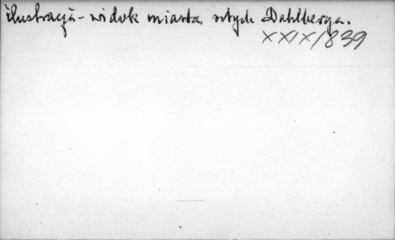 ilustracją - widok miasta, sztych Dahlberga.
XXIX/839